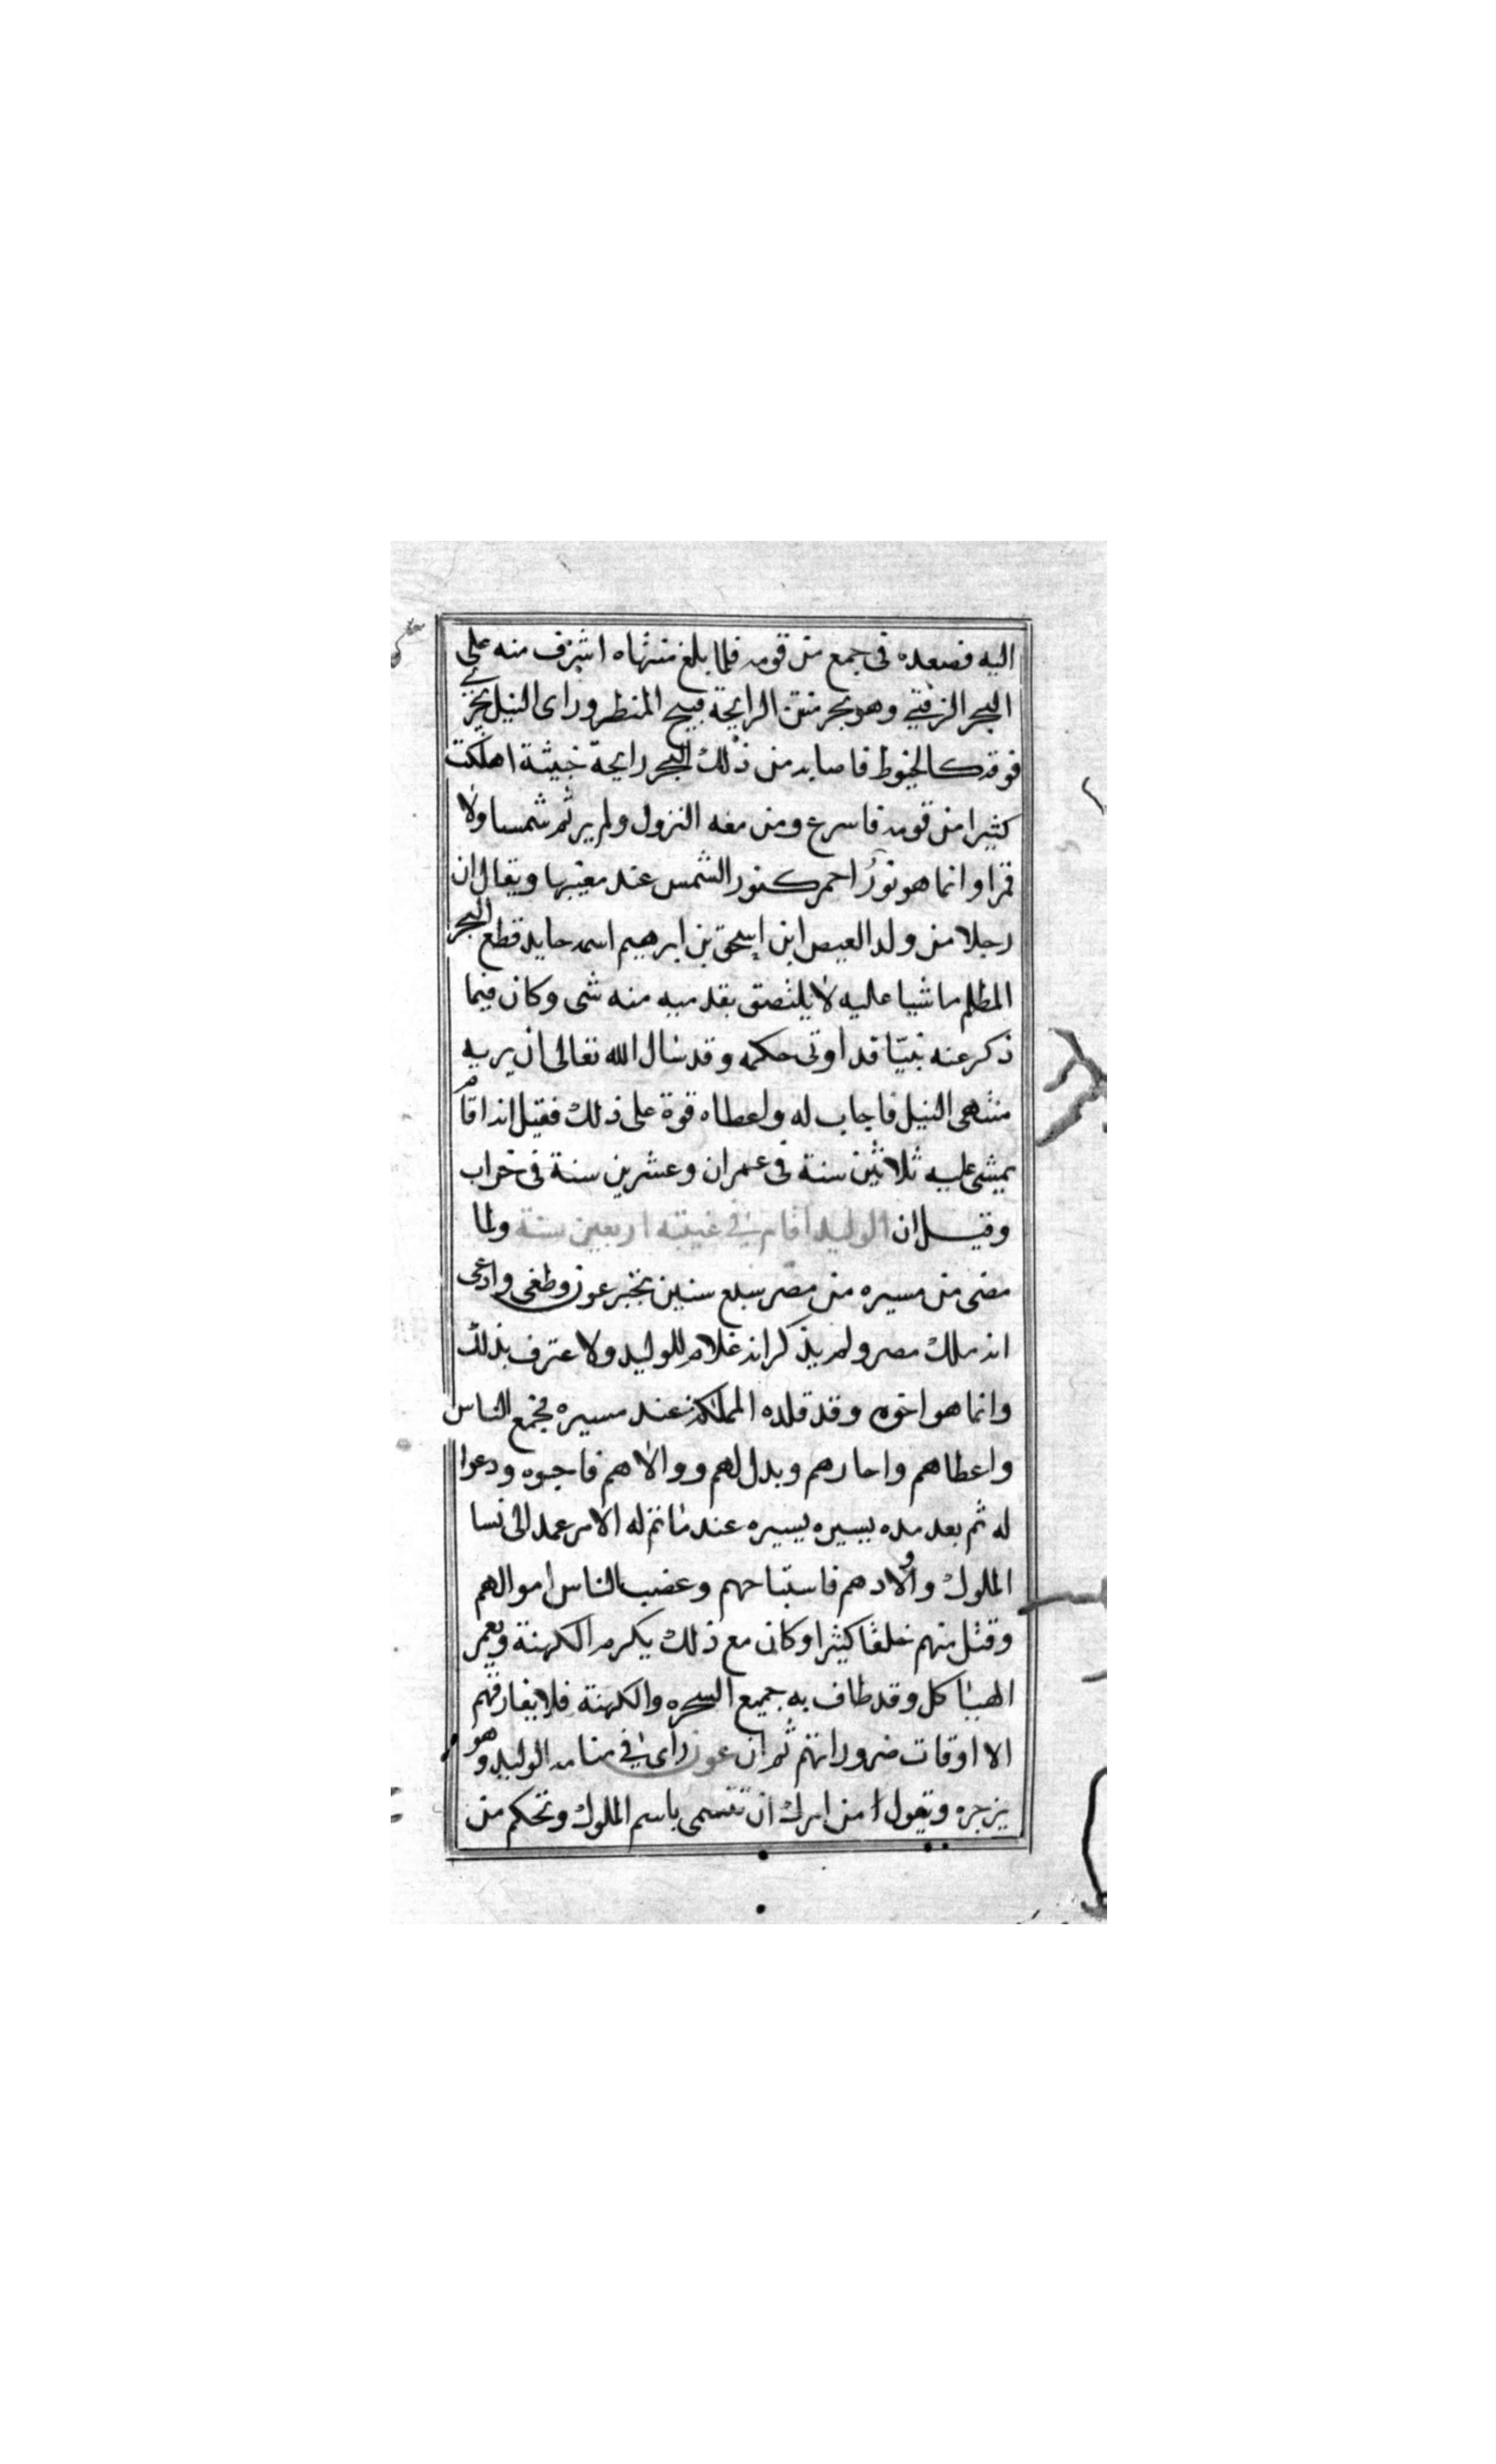 اليه فصعده فى جمع من قومه فلما بلغ منتهاه اشرف منه على
البحر الزفتي وهو بحر منتن الرايحة قبيح المنظر وراى النيل يجرى
فوقه كالخيوط فاصابه من ذلك البحر رايحة خبيثة اهلكت
كثيرا من قومه فاسرع ومن معه النزول ولم ير ثم شمسا ولا
قمرا وانما هو نورٌ احمر كنور الشمس عند مغيبها ويقال ان
رجلا من ولد العيص ابن اسحق بن ابرهيم اسمه حايد قطع البحر
المظلم ماشيا عليه لا يلتصق بقدميه منه شى وكان فيما
ذكر عنه نبيّا قد اوتى حكمه وقد سال الله تعالى ان يريه
منتهى النيل فاجاب له واعطاه قوة على ذلك فقيل انه اقام
يمشى عليه ثلاثين سنة فى عمران وعشرين سنة فى خراب
وقيل ان الوليد اقام في غيبته اربعين سنة ولما
مضى من مسيره من مصر سبع سنين تجبر عون وطغى وادعى
انه ملك مصر ولم يذكر انه غلام للوليد ولا عترف بذلك
وانما هو اخوه وقد قلده المملكة عند مسيره فجمع الناس
واعطاهم واجارهم وبدل لهم ووالاهم فاجبوه ودعوا
له ثم بعد مده يسيره يسيره عند ما تم له الامر عمد الى نسا
الملوك واولادهم فاستباحهم وغصب الناس اموالهم
وقتل منهم خلقا كثيرا وكان مع ذلك يكرم الكهنة ويعمر
الهياكل وقد طاف به جميع السحره والكهنة فلا يفارقهم
الا اوقات ضروراتهم ثم ان عون راى في منامه الوليد وهو
يزجره ويقول امن امرك ان تتسمى باسم الملوك وتحكم من